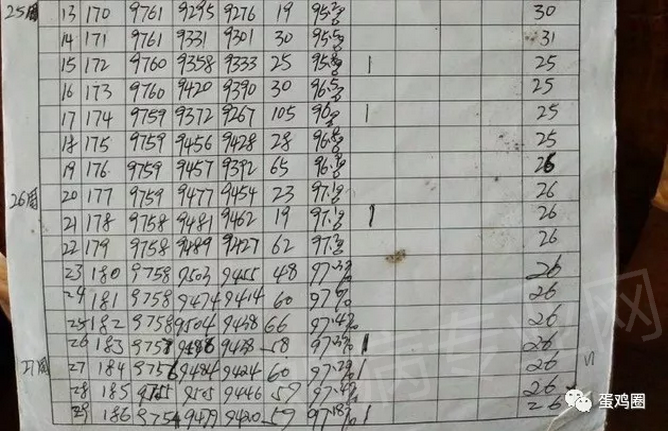 25周 13 170 9761 9295 9276 19 95.2% 30
14 171 9761 9331 9301 30 95.5% 31
15 172 9760 9358 9333 25 95.8% 1 25
16 173 9760 9420 9390 30 96.5% 25
17 174 9759 9372 9267 105 96% 1 25
18 175 9759 9456 9428 28 96.8% 25
19 176 9759 9457 9392 65 96.9% 26
26周 20 177 9759 9477 9454 23 97.1% 26
21 178 9758 9481 9462 19 97.1% 1 26
22 179 9758 9489 9427 62 97.2% 26
23 180 9758 9503 9455 48 97.3% 26
24 181 9758 9474 9414 60 97% 26
25 182 9758 9504 9438 66 97.4% 26
26 183 9757 9486 9428 58 97.2% 1 26
27周 27 184 9756 9484 9424 60 97.2% 1 26
28 185 9755 9505 9446 59 97.4% 26
29 186 9754 9479 9420 59 97.18% 1 26
蛋鸡圈